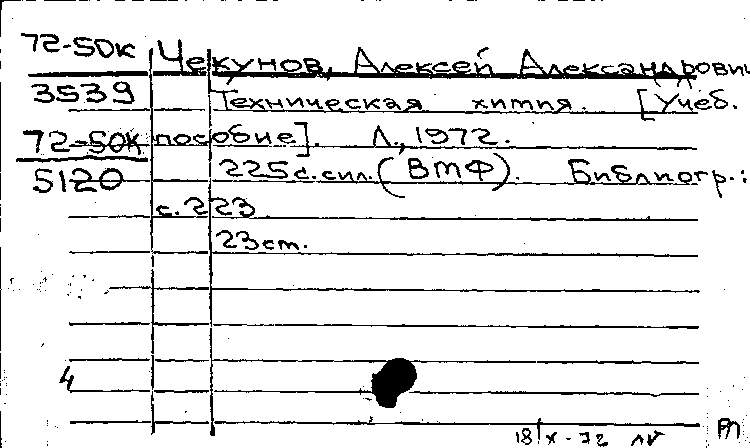 72-50к Чекунов, Алексей Александрович
3539 Техническая химия. [Учеб.
72-50к пособие]. Л., 1972.
5120 225 с. с ил. (ВМФ). Библиогр.:
с. 223
23 ст.
4
18/X-72